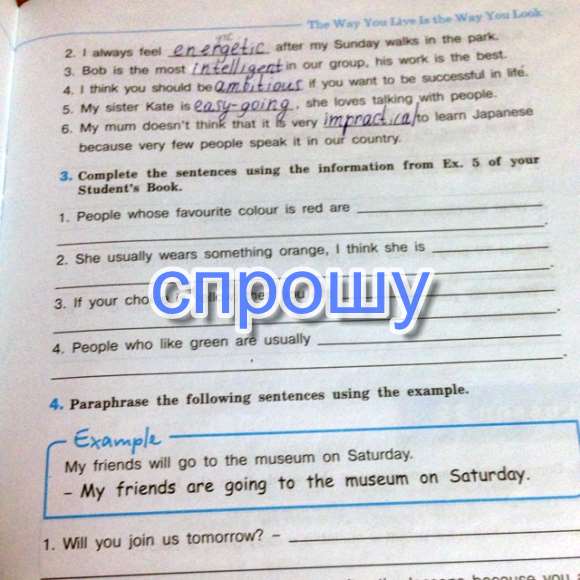 The Way You Live Is the Way You Look
2. I always feel energetic after my Sunday walks in the park.
3. Bob is the most intelligent in our group, his work is the best.
4. I think you should be ambitious if you want to be successful in life.
5. My sister Kate is easy-going, she loves talking with people.
6. My mum doesn't think that it is very impractical to learn Japanese
because very few people speak it in our country.
3. Complete the sentences using the information from Ex. 5 of your
Student's Book.
1. People whose favourite colour is red are
2. She usually wears something orange, I think she is
спрошу
3. If your
4. People who like green are usually
4. Paraphrase the following sentences using the example.
Example
My friends will go to the museum on Saturday.
– My friends are going to the museum on Saturday.
1. Will you join us tomorrow? –